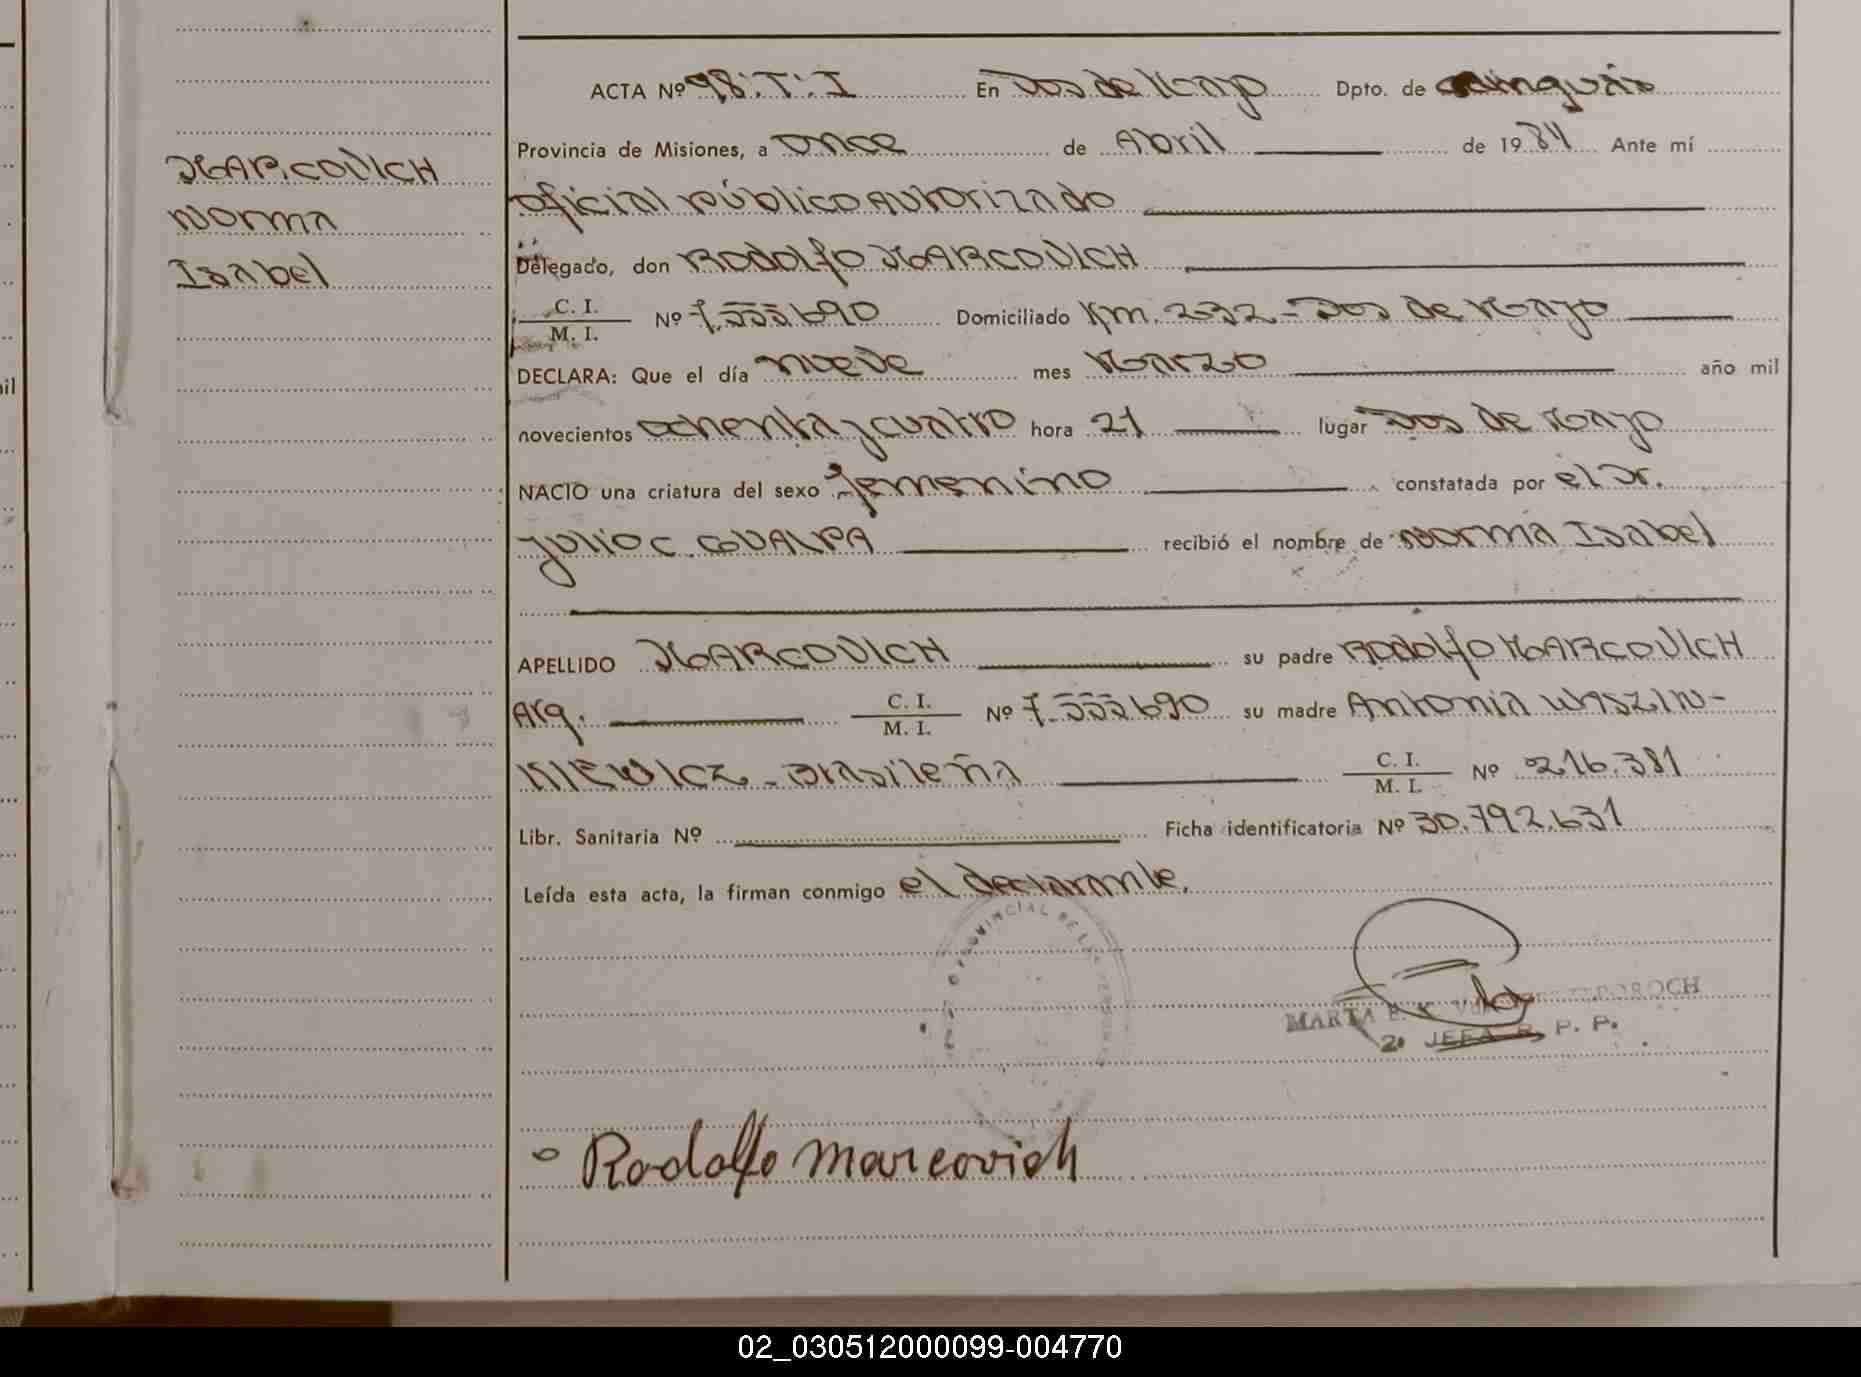 ACTA Nº 98:T:I En Dos de Mayo Dpto. de Cainguás
Provincia de Misiones, a once de Abril de 1984 Ante mí
MARCOVICH
oficial público autorizado
Norma
Delegado, don RODOLFO MARCOVICH
Isabel
C. I.
M. I. Nº 7.555.690 Domiciliado Km. 232 - Dos de Mayo
DECLARA: Que el día nueve mes Marzo año mil
novecientos ochenta y cuatro hora 21 lugar Dos de Mayo
NACIO una criatura del sexo femenino constatada por el Dr.
Julio C. GUALPA recibió el nombre de Norma Isabel
APELLIDO MARCOVICH su padre RODOLFO MARCOVICH
Arg. C. I. M. I. Nº 7.555.690 su madre Antonia WASZINU-
KIEWICZ - Brasileña C. I. M. I. Nº 216.381
Libr. Sanitaria Nº Ficha identificatoria Nº 30.792.631
Leída esta acta, la firman conmigo el declarante.
PROVINCIAL DE LAS PERSONAS
MARTA E. K. Vda.
2ª JEFA R. P. P.
Rodolfo Marcovich
02_030512000099-004770